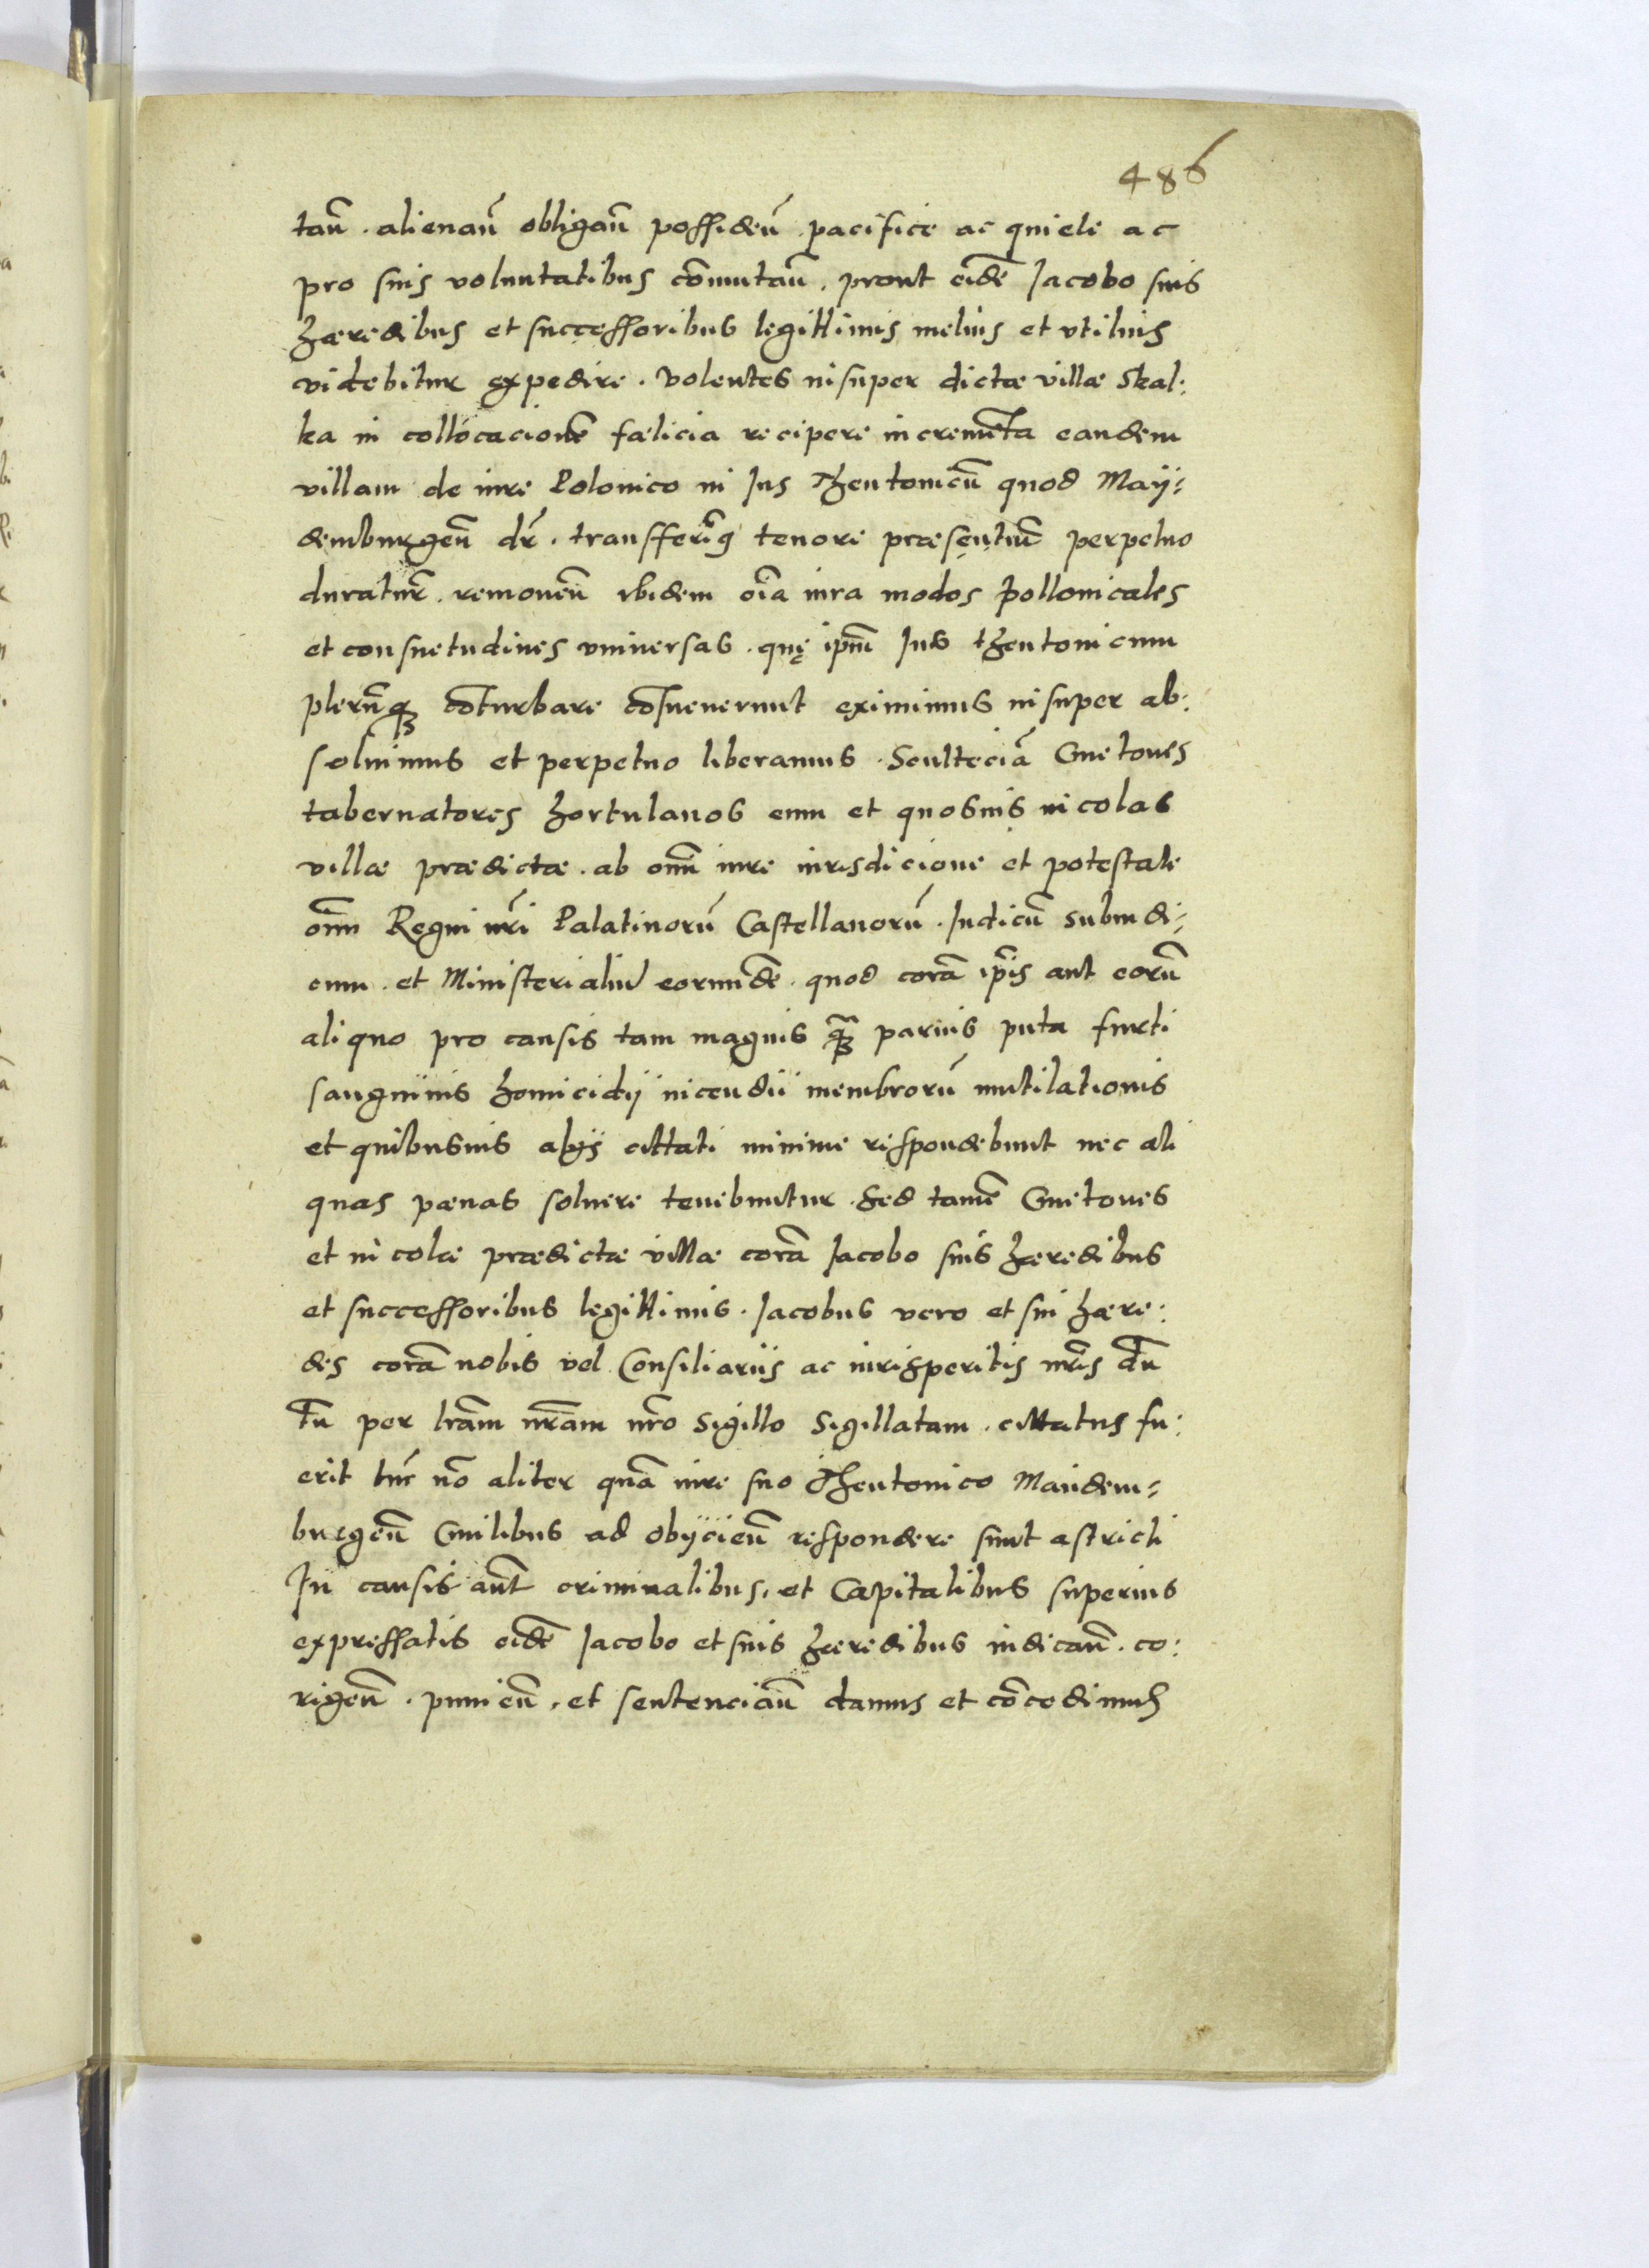 486
tan̄ . alienan̄ obligan̄ possiden̄ . pacifice ac quiete ac
pro suis voluntatibus com̄utan̄ . prout eidē Jacobo suis
hæredibus et successoribus legittimis melius et vtilius
videbitur expedire . Volentes insuper dictæ villæ Skal:
ka in collocacionē fælicia recipere incremēta eandem
villam de iure Polonico in Jus Theutonicū quod Maij=
demburgen̄ dr̄ . transfferim̄9 tenore præsentiū perpetuo
duratur̄ . remouen̄ ibidem oīa iura modos Pollonicales
et consuetudines vniuersas . quę ipm̄ Jus theutonicum
plerūq3 cōturbare cōsueuerunt eximimus insuper ab:
soluimus et perpetuo liberamus . Scultetiā Cmetones
tabernatores hortulanos cum et quosuis incolas
villæ prædictæ . ab omī iure iurisdicione et potestate
om̄ Regni nrī Palatinorū Castellanorū . Judicū Subiudi=
cum . et Ministerialiū eorundē . quod corā ip̄is aut eorū
aliquo pro causis tam magnis q̄3 paruis puta furti
sanguinis homicidij incendii membrorū mutilationis
et quibusuis alijs cittati minime respondebunt nec ali
quas pœnas soluere tenebuntur . Sed tamē Cmetones
et incolæ prædictæ villæ corā Jacobo suis hæredibus
et successoribus legittimis . Jacobus vero et sui hære:
des corā nobis vel Consiliariis ac iurisperitis nrīs dū
Tū per lrām nrām nrō Sigillo Sigillatam . cittatus fu:
erit tūc nō aliter quā iure suo Theutonico Maidem=
burgen̄ Cuilibus ad obijcien̄ respondere sunt astricti
In causis aūt criminalibus, et Capitalibus superius
expressatis eidē Jacobo et suis hæredibus iudican̄ . co:
rigen̄ . punien̄ . et sentencian̄ damus et cōcedimus